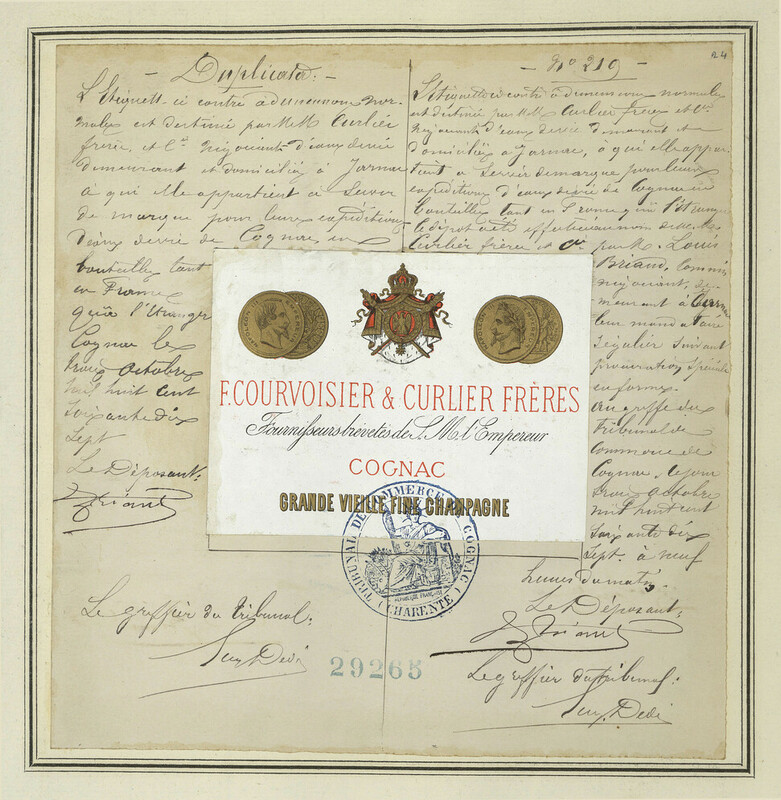 Duplicata
L'Etiquette ci contre à dimensions nor-
males est destinée par MM Curlier
frères et Cie Négociants d'eaux devie
demeurant et domiciliés à Jarnac
à qui elle appartient à Servir
de marque pour leurs expéditions
d'eaux devie de Cognac en
bouteilles tant
en France
qu'à l'Etranger
Cognac le
trois octobre
mil huit cent
soixante dix
sept
Le Déposant:
Briand
Le greffier du tribunal:
No 219
24
L'Etiquette ci contre à dimensions normales
est destinée par MM. Curlier frères et Cie
Négociants d'eaux devie demeurant et
domiciliés à Jarnac, à qui elle appar-
tient à Servir de marque pour leurs
expéditions d'eaux devie de Cognac en
bouteilles tant en France qu'à l'Etranger
Le dépôt a été effectué au nom de MM.
Curlier frères et Cie par M. Louis
Briand, Commis
négociant, de-
meurant à Jarnac
leur mandataire
régulier suivant
procuration spéciale
en forme.
au greffe du
Tribunal de
Commerce de
Cognac, ce jour
trois octobre
mil huit cent
soixante dix
sept. à neuf
heures du matin.
Le Déposant:
Briand
Le greffier du tribunal:
NAPOLEON III EMPEREUR
NAPOLEON III EMPEREUR
F. COURVOISIER & CURLIER FRÈRES
Fournisseurs brevetés de S. M. l'Empereur
COGNAC
GRANDE VIEILLE FINE CHAMPAGNE
TRIBUNAL DE COMMERCE COGNAC
REPUBLIQUE FRANÇAISE
(CHARENTE)
29265